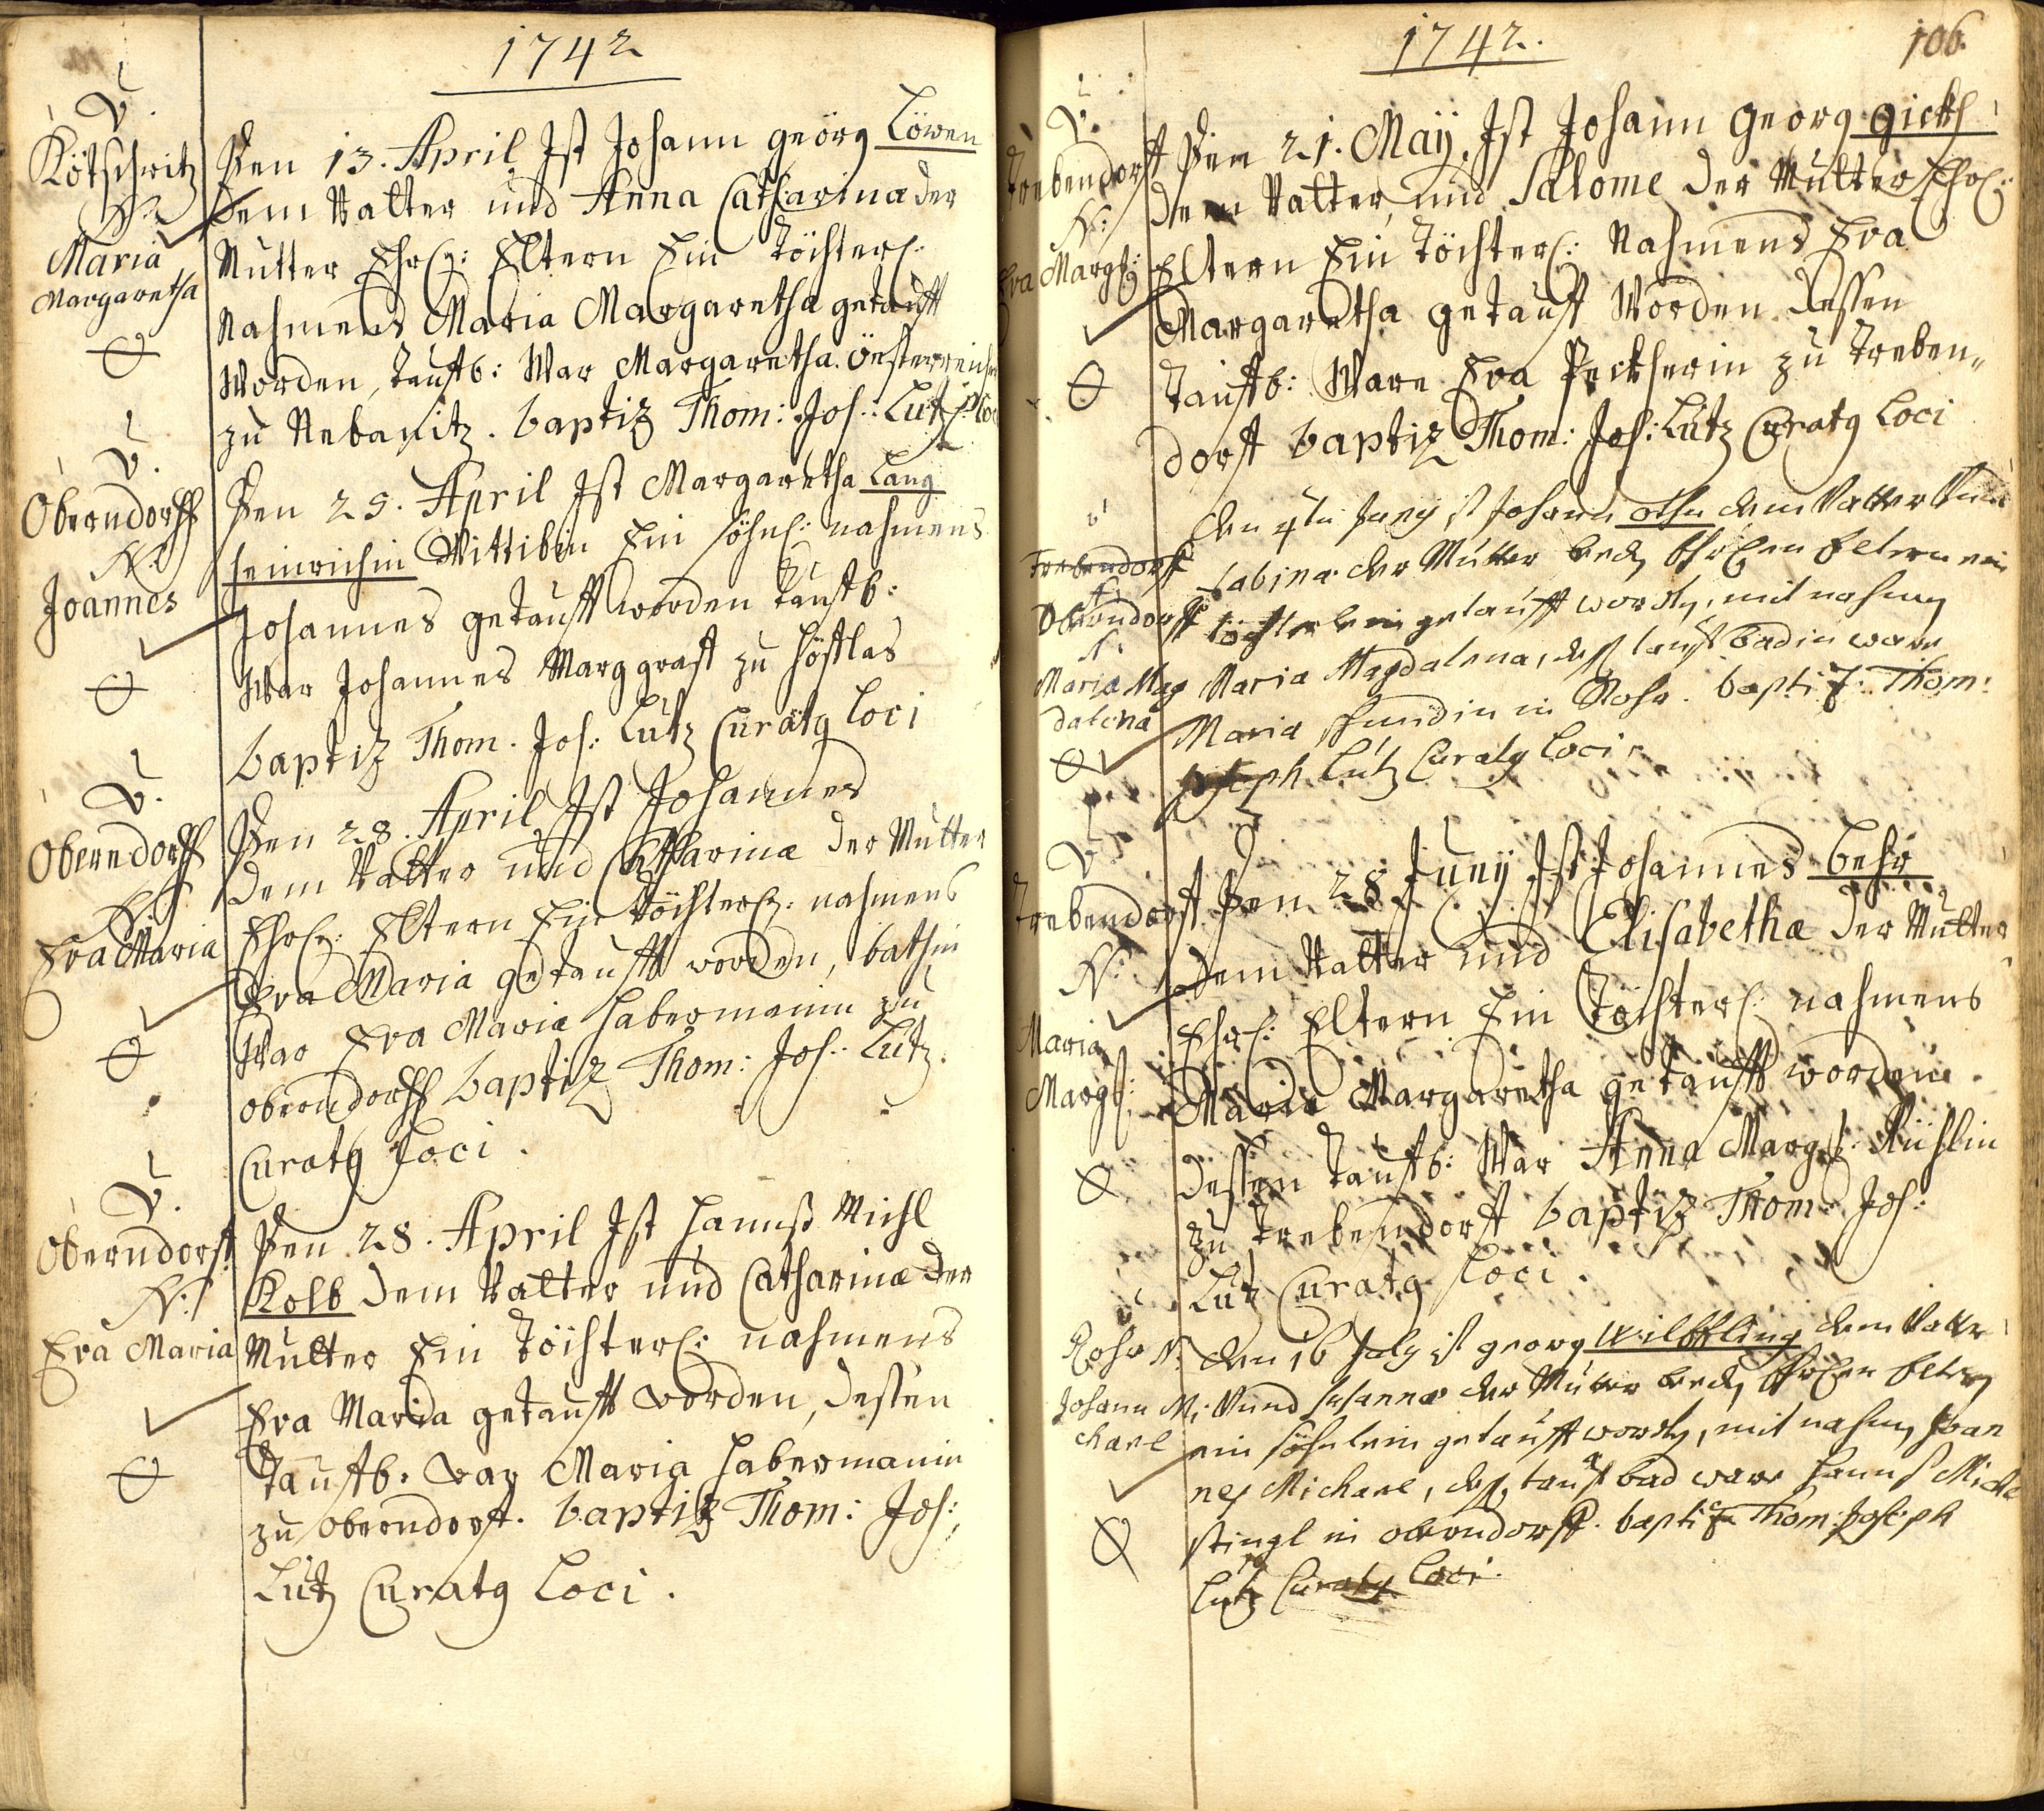 1742
V.
Kötschwitz
N:
Maria
Margaretha
Den 13. April Ist Johann georg Löwen
Dem Vatter und Anna Catharina der
Mutter Ehrl: Eltern Ein Töchterl:
Nahmens Maria Margaretha getaufft
Worden, Taufb: War Margaretha Öesterreich
zu Nebanitz. baptiz Thom: Jos: Lutz
V.
Oberndorff
N:
Joannes
Den 25. April Ist Margaretha Lang
heinrichin Wittibin Ein söhnl: nahmens
Johannes getaufft worden taufb:
War Johannes Marggraff zu Höfflas
baptiz Thom. Jos: Lutz Curatg Loci
V.
Oberndorff
N:
Eva Maria
Den 28. April Ist Johannes
Dem Vatter und Catharina der Mutter
Ehrl: Eltern Ein töchterl: nahmens
Eva Maria getaufft worden, bathin
War Eva Maria Habermanin zu
oberndorff baptiz Thom: Jos: Lutz.
Curatg Loci.
V.
Oberndorff
N:
Eva Maria
Den 28. April Ist Hannß Michl
Kolb Dem Vatter und Catharina der
Mutter Ein Töchterl: nahmens
Eva Maria getaufft worden, dessen
Taufb. war Maria Habermanin
zu oberndorff. baptiz Thom: Jos:
Lutz Curatg Loci.
1742.
106.
V.
Trebendorff
N:
Eva Margh:
Den 21. Maÿ, Ist Johann Georg gickh
dem Vatter, und Salome der Mutter Ehrl:
Eltern Ein Töchterl: Nahmens Eva
Margaretha getauft Worden dessen
Taufb: Ware Eva Peckherin zu Treben„
dorff baptiz Thom: Jos: Lutz Curatg Loci
V
Trebendorff
Oberndorff
N:
Maria Mag
dalena
den 4ten Juny ist Johann othn dem Vatter und
Sabina der Mutter beed Ehrlen Eltern ein
töchterlein getaufft word, mit nahmen
Maria Magdalena, deß tauffbadin ware
Maria hundin in Rohr. baptiz: Thom:
Joseph Lutz Curatg Loci
V
Trebendorff
N:
Maria
Margh:
Den 28 Junÿ Ist Johannes behr
Dem Vatter und Elisabetha der Mutter
Ehrl: Eltern Ein Töchterl: nahmens
Maria Margaretha getaufft worden.
dessen Taufb: War Anna Margh: Rühlin
zu Trebendorff baptiz Thom: Jos:
Lutz Curatg Loci.
Rohr N:
Johann Mi
chael
den 16 July ist georg Wilffling dem Vatter
und Susanna der Mutter beed Ehrlen Eltern
ein söhnlein getaufft word, mit nahmen Joan
nes Michael, deß taufbad ware Hannß Michl
stingl in oberndorff. baptiz Thom: Joseph
Lutz Curatg Loci.